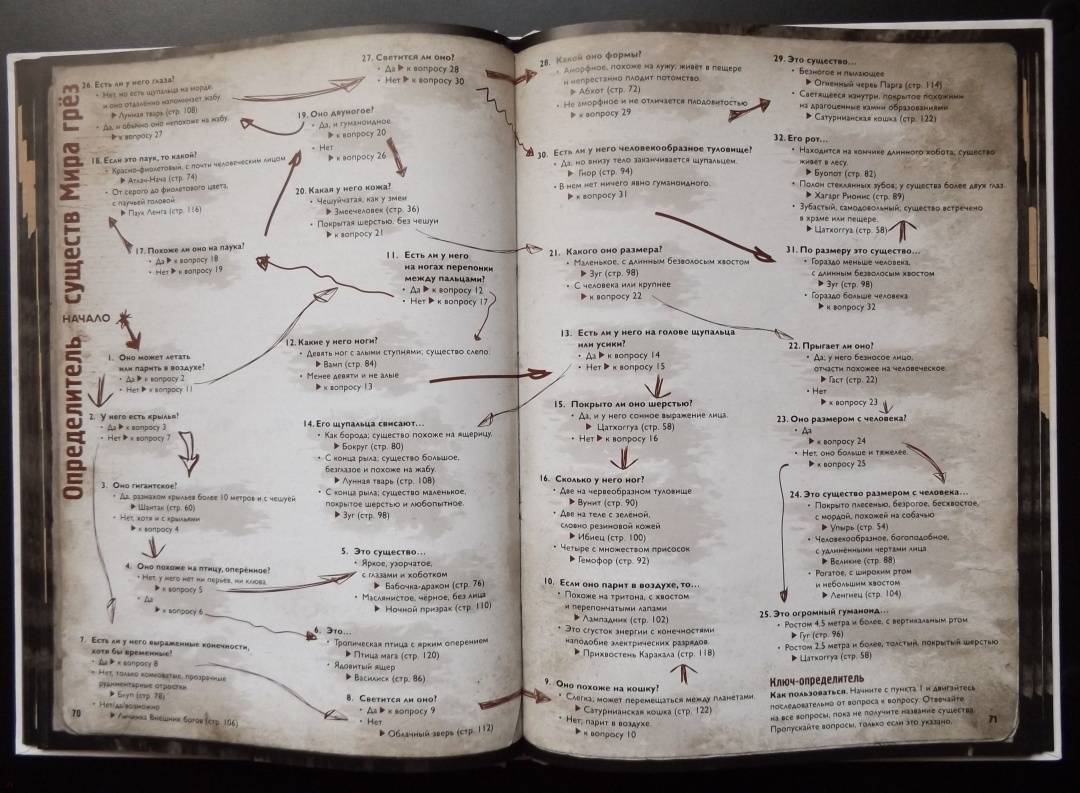 Определитель существ Мира грёз
НАЧАЛО
1. Оно может летать
или парить в воздухе?
• Да ▶ к вопросу 2
• Нет ▶ к вопросу 11
2. У него есть крылья?
• Да ▶ к вопросу 3
• Нет ▶ к вопросу 7
3. Оно гигантское?
• Да, размахом крыльев более 10 метров и с чешуей
▶ Шантак (стр. 60)
• Нет, хотя и с крыльями
▶ к вопросу 4
4. Оно похоже на птицу, оперённое?
• Нет, у него нет ни перьев, ни клюва.
▶ к вопросу 5
• Да
▶ к вопросу 6
5. Это существо...
• Яркое, узорчатое,
с глазами и хоботком
▶ Бабочка-дракон (стр. 76)
• Маслянистое, чёрное, без лица
▶ Ночной призрак (стр. 110)
6. Это...
• Тропическая птица с ярким оперением
▶ Птица мага (стр. 120)
• Ядовитый ящер
▶ Василиск (стр. 86)
7. Есть ли у него выраженные конечности,
хотя бы временные?
• Да ▶ к вопросу 8
• Нет, только комковатые, прозрачные
рудиментарные отростки
▶ Блуп (стр. 78)
• Нет/да/возможно
▶ Личинка Внешних богов (стр. 106)
8. Светится ли оно?
• Да ▶ к вопросу 9
• Нет
▶ Облачный зверь (стр. 112)
70
26. Есть ли у него глаза?
• Нет, но есть щупальца на морде,
и оно отдалённо напоминает жабу.
▶ Лунная тварь (стр. 108)
• Да, и обычно оно непохоже на жабу.
▶ к вопросу 27
18. Если это паук, то какой?
• Красно-фиолетовый, с почти человеческим лицом
▶ Атлач-Нача (стр. 74)
• От серого до фиолетового цвета,
с паучьей головой
▶ Паук Ленга (стр. 116)
17. Похоже ли оно на паука?
• Да ▶ к вопросу 18
• Нет ▶ к вопросу 19
27. Светится ли оно?
• Да ▶ к вопросу 28
• Нет ▶ к вопросу 30
19. Оно двуногое?
• Да, и гуманоидное.
▶ к вопросу 20
• Нет
▶ к вопросу 26
20. Какая у него кожа?
• Чешуйчатая, как у змеи
▶ Змеечеловек (стр. 36)
• Покрытая шерстью, без чешуи
▶ к вопросу 21
11. Есть ли у него
на ногах перепонки
между пальцами?
• Да ▶ к вопросу 12
• Нет ▶ к вопросу 17
12. Какие у него ноги?
• Девять ног с алыми ступнями; существо слепо.
▶ Вамп (стр. 84)
• Менее девяти и не алые
▶ к вопросу 13
14. Его щупальца свисают...
• Как борода; существо похоже на ящерицу.
▶ Бокруг (стр. 80)
• С конца рыла; существо большое,
безглазое и похоже на жабу.
▶ Лунная тварь (стр. 108)
• С конца рыла; существо маленькое,
покрытое шерстью и любопытное.
▶ Зуг (стр. 98)
28. Какой оно формы?
• Аморфное, похоже на лужу; живёт в пещере
и непрестанно плодит потомство.
▶ Абхот (стр. 72)
• Не аморфное и не отличается плодовитостью
▶ к вопросу 29
30. Есть ли у него человекообразное туловище?
• Да, но внизу тело заканчивается щупальцем.
▶ Гнор (стр. 94)
• В нём нет ничего явно гуманоидного.
▶ к вопросу 31
21. Какого оно размера?
• Маленькое, с длинным безволосым хвостом
▶ Зуг (стр. 98)
• С человека или крупнее
▶ к вопросу 22
13. Есть ли у него на голове щупальца
или усики?
• Да ▶ к вопросу 14
• Нет ▶ к вопросу 15
15. Покрыто ли оно шерстью?
• Да, и у него сонное выражение лица.
▶ Цатхоггуа (стр. 58)
• Нет ▶ к вопросу 16
16. Сколько у него ног?
• Две на червеобразном туловище
▶ Вунит (стр. 90)
• Две на теле с зелёной,
словно резиновой кожей
▶ Ибиец (стр. 100)
• Четыре с множеством присосок
▶ Гемофор (стр. 92)
10. Если оно парит в воздухе, то...
• Похоже на тритона, с хвостом
и перепончатыми лапами
▶ Лампадник (стр. 102)
• Это сгусток энергии с конечностями
наподобие электрических разрядов.
▶ Прихвостень Каракала (стр. 118)
9. Оно похоже на кошку?
• Слегка; может перемещаться между планетами.
▶ Сатурнианская кошка (стр. 122)
• Нет; парит в воздухе.
▶ к вопросу 10
29. Это существо...
• Безногое и пылающее
▶ Огненный червь Парга (стр. 114)
• Светящееся изнутри, покрытое похожими
на драгоценные камни образованиями
▶ Сатурнианская кошка (стр. 122)
32. Его рот...
• Находится на кончике длинного хобота; существо
живёт в лесу.
▶ Буопот (стр. 82)
• Полон стеклянных зубов; у существа более двух глаз.
▶ Хагарг Рионис (стр. 89)
• Зубастый, самодовольный; существо встречено
в храме или пещере.
▶ Цатхоггуа (стр. 58)
31. По размеру это существо...
• Гораздо меньше человека,
с длинным безволосым хвостом
▶ Зуг (стр. 98)
• Гораздо больше человека
▶ к вопросу 32
22. Прыгает ли оно?
• Да; у него безносое лицо,
отчасти похожее на человеческое.
▶ Гаст (стр. 22)
• Нет
▶ к вопросу 23
23. Оно размером с человека?
• Да
▶ к вопросу 24
• Нет, оно больше и тяжелее.
▶ к вопросу 25
24. Это существо размером с человека...
• Покрыто плесенью, безрогое, бесхвостое,
с мордой, похожей на собачью
▶ Упырь (стр. 54)
• Человекообразное, богоподобное,
с удлинёнными чертами лица
▶ Великие (стр. 88)
• Рогатое, с широким ртом
и небольшим хвостом
▶ Ленгиец (стр. 104)
25. Это огромный гуманоид...
• Ростом 4,5 метра и более, с вертикальным ртом
▶ Гуг (стр. 96)
• Ростом 2,5 метра и более, толстый, покрытый шерстью
▶ Цатхоггуа (стр. 58)
Ключ-определитель
Как пользоваться. Начните с пункта 1 и двигайтесь
последовательно от вопроса к вопросу. Отвечайте
на все вопросы, пока не получите название существа.
Пропускайте вопросы, только если это указано.
71